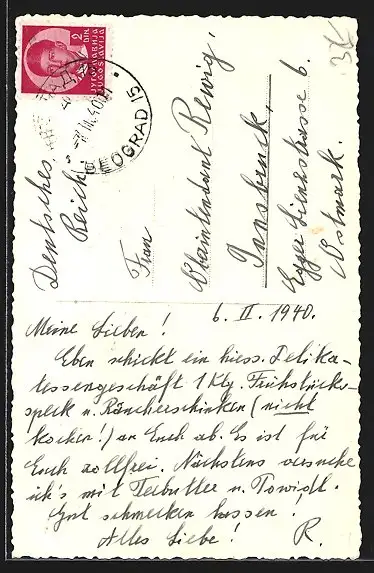 2
DIN.
ЈУГОСЛАВИЈА
JUGOSLAVIJA
BEOGRAD 15
Deutsches
Reich.
Frau
Obaintendant Rewig,
Innsbruck,
Egger Lienzstrasse 6.
Ostmark.
6. II. 1940.
Meine Lieben!
Eben schickt ein hies. Delika-
tessengeschäft 1 Klg. Frühstücks-
speck u. Räucherschinken (nicht
kochen!) an Euch ab. Es ist für
Euch zollfrei. Nächstens versuche
ich's mit Teebutter u. Powidl.
Gut schmecken lassen!
Alles Liebe! R.